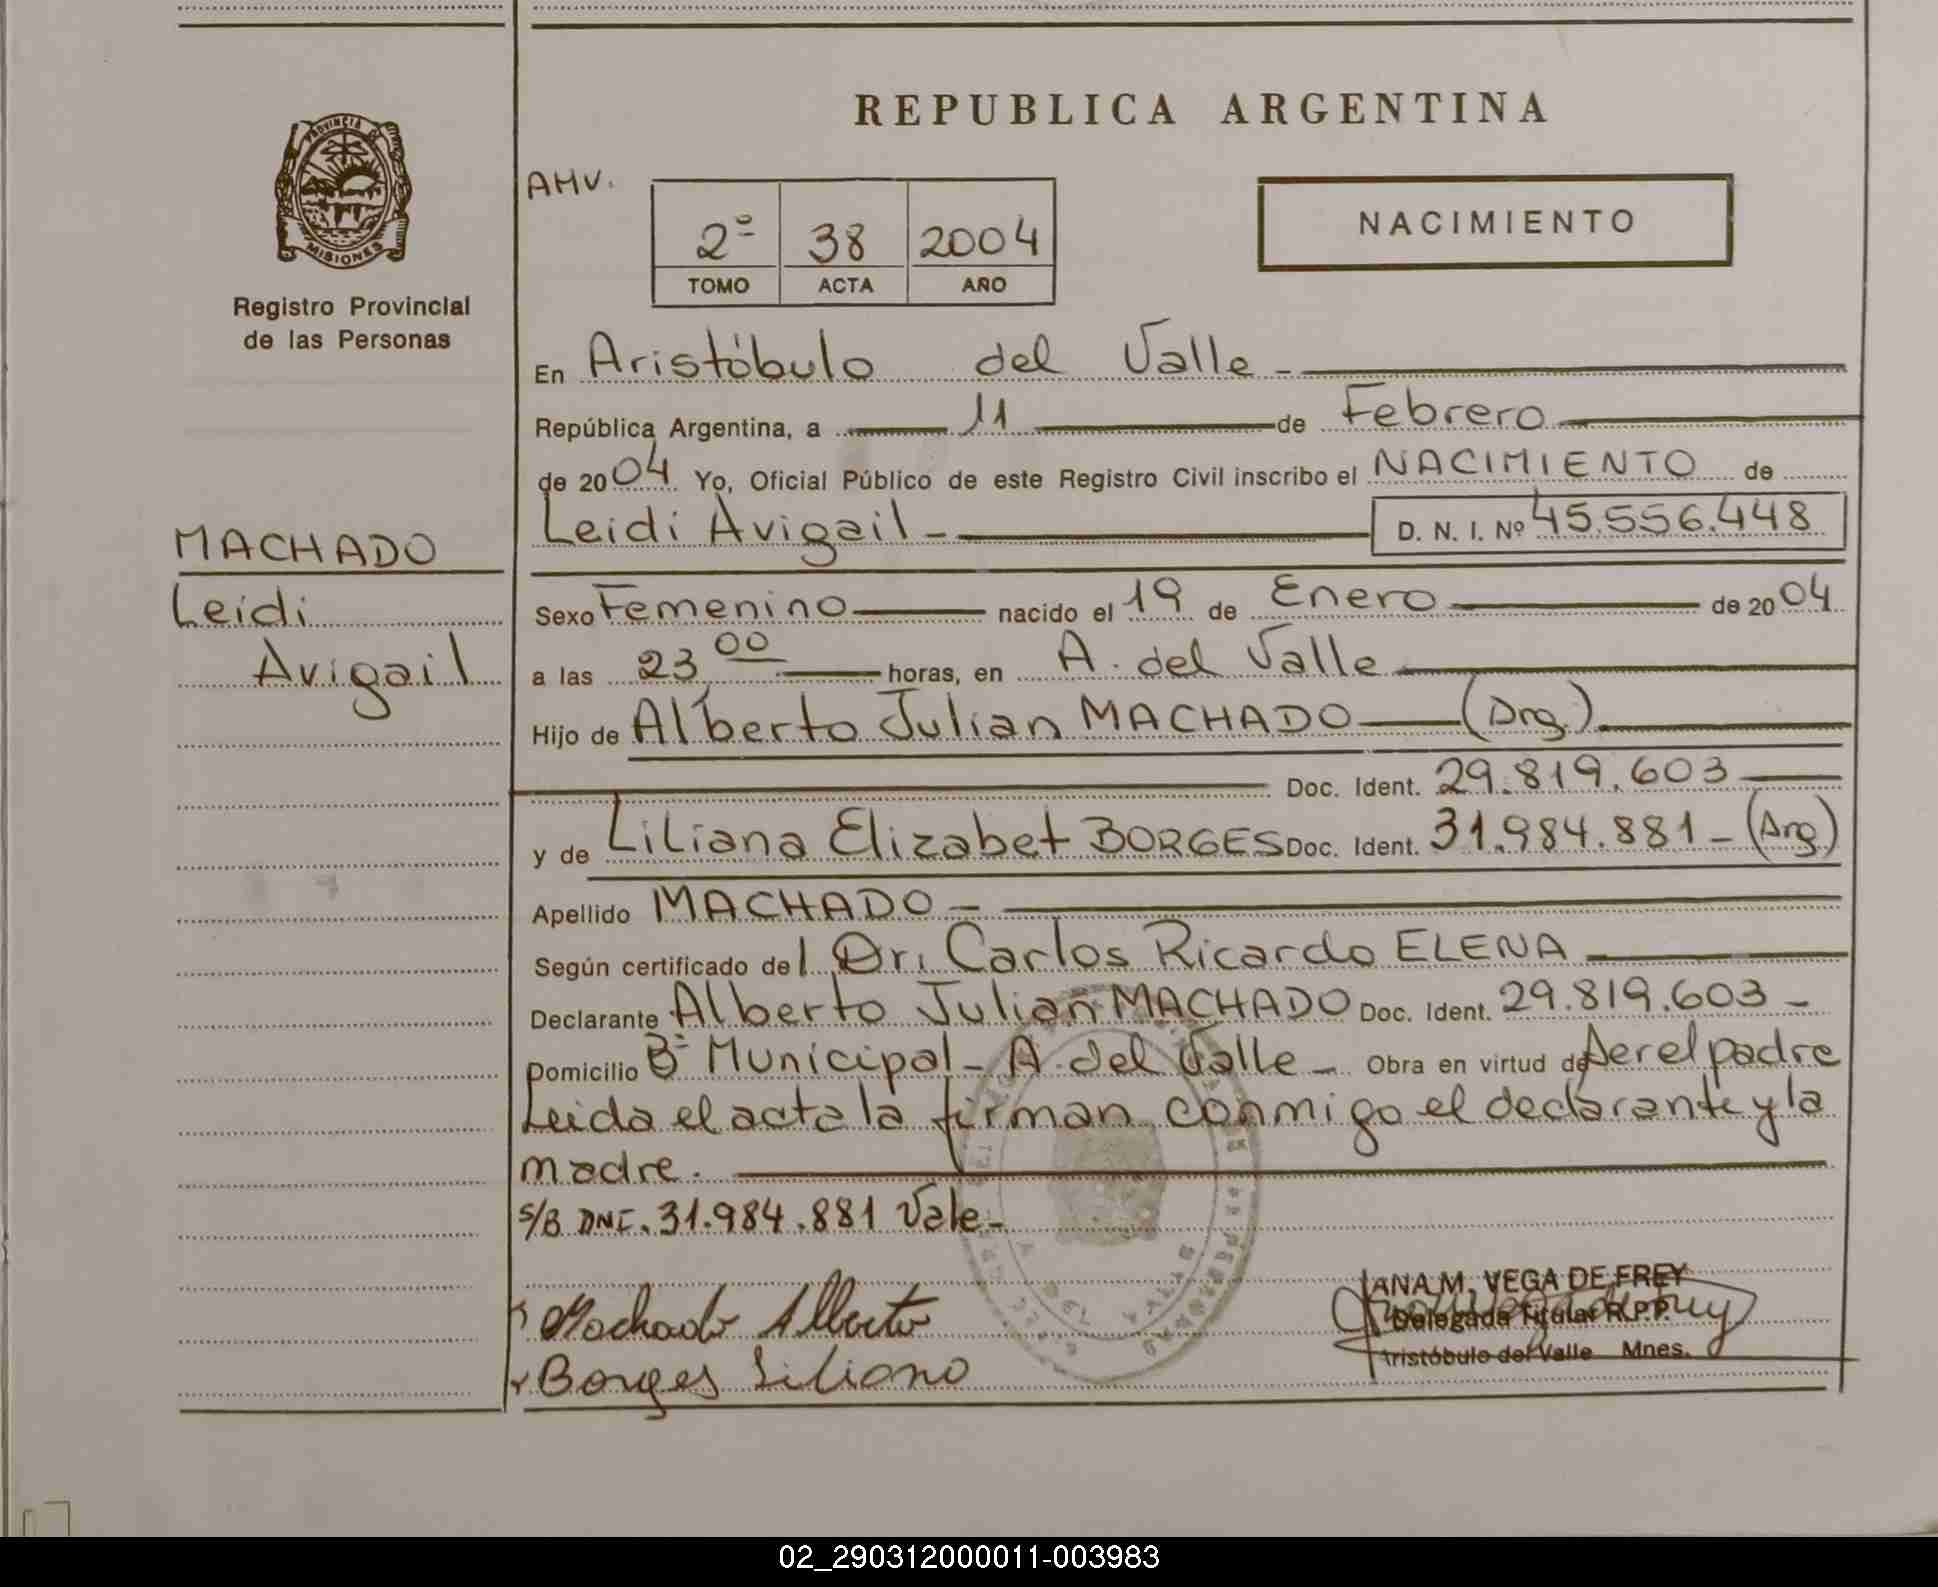 REPUBLICA ARGENTINA
PROVINCIA DE
MISIONES
Registro Provincial
de las Personas
AMV.
2º 38 2004
TOMO ACTA AÑO
NACIMIENTO
En Aristóbulo del Valle -
República Argentina, a 11 de Febrero
de 2004 Yo, Oficial Público de este Registro Civil inscribo el NACIMIENTO de
Leidi Avigail - D. N. I. Nº 45.556.448
MACHADO
Leidi
Avigail
Sexo Femenino nacido el 19 de Enero de 2004
a las 23 00 horas, en A. del Valle
Hijo de Alberto Julian MACHADO (Arg.)
Doc. Ident. 29.819.603
y de Liliana Elizabet BORGES Doc. Ident. 31.984.881 - (Arg)
Apellido MACHADO -
Según certificado del Dr. Carlos Ricardo ELENA
Declarante Alberto Julian MACHADO Doc. Ident. 29.819.603 -
Domicilio Bº Municipal - A. del Valle - Obra en virtud de Ser el padre
Leida el acta la firman conmigo el declarante y la
madre.
S/B DNI. 31.984.881 Vale -
Machado Alberto
Borges Liliana
ANA M. VEGA DE FREY
Delegada Titular R.P.P.
Aristóbulo del Valle Mnes.
02_290312000011-003983